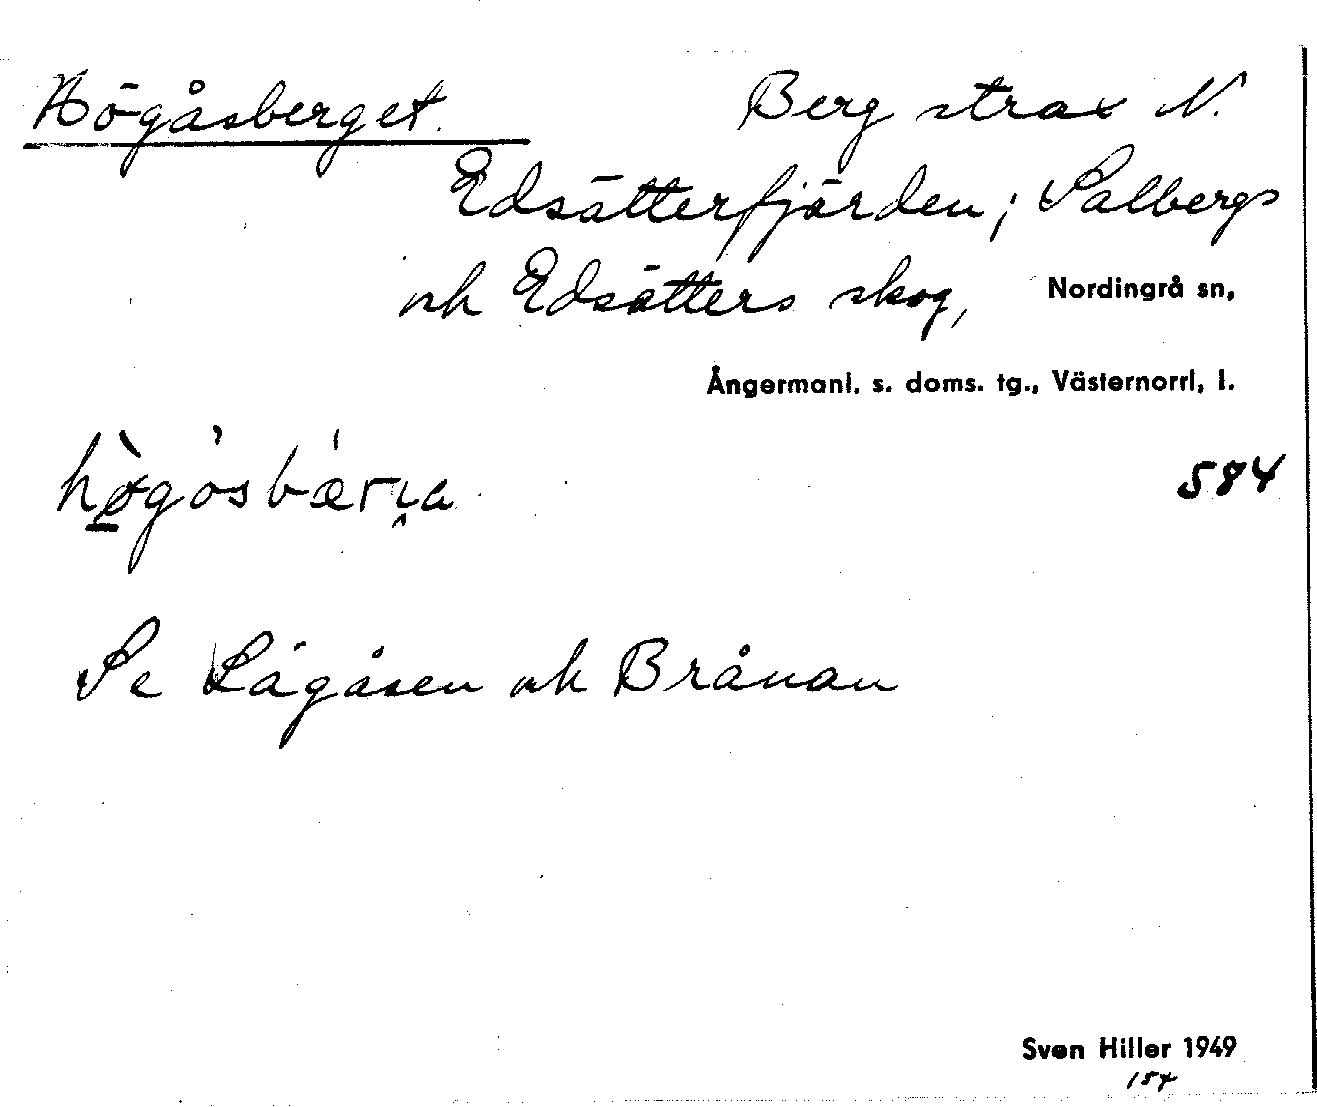 Högåsberget. Berg strax N.
Edsätterfjärden; Salbergs
och Edsätters skog, Nordingrå sn,
Ångermanl. s. doms. tg., Västernorrl. l.
584
Se Lågåsen och Brånan
Sven Hiller 1949
154